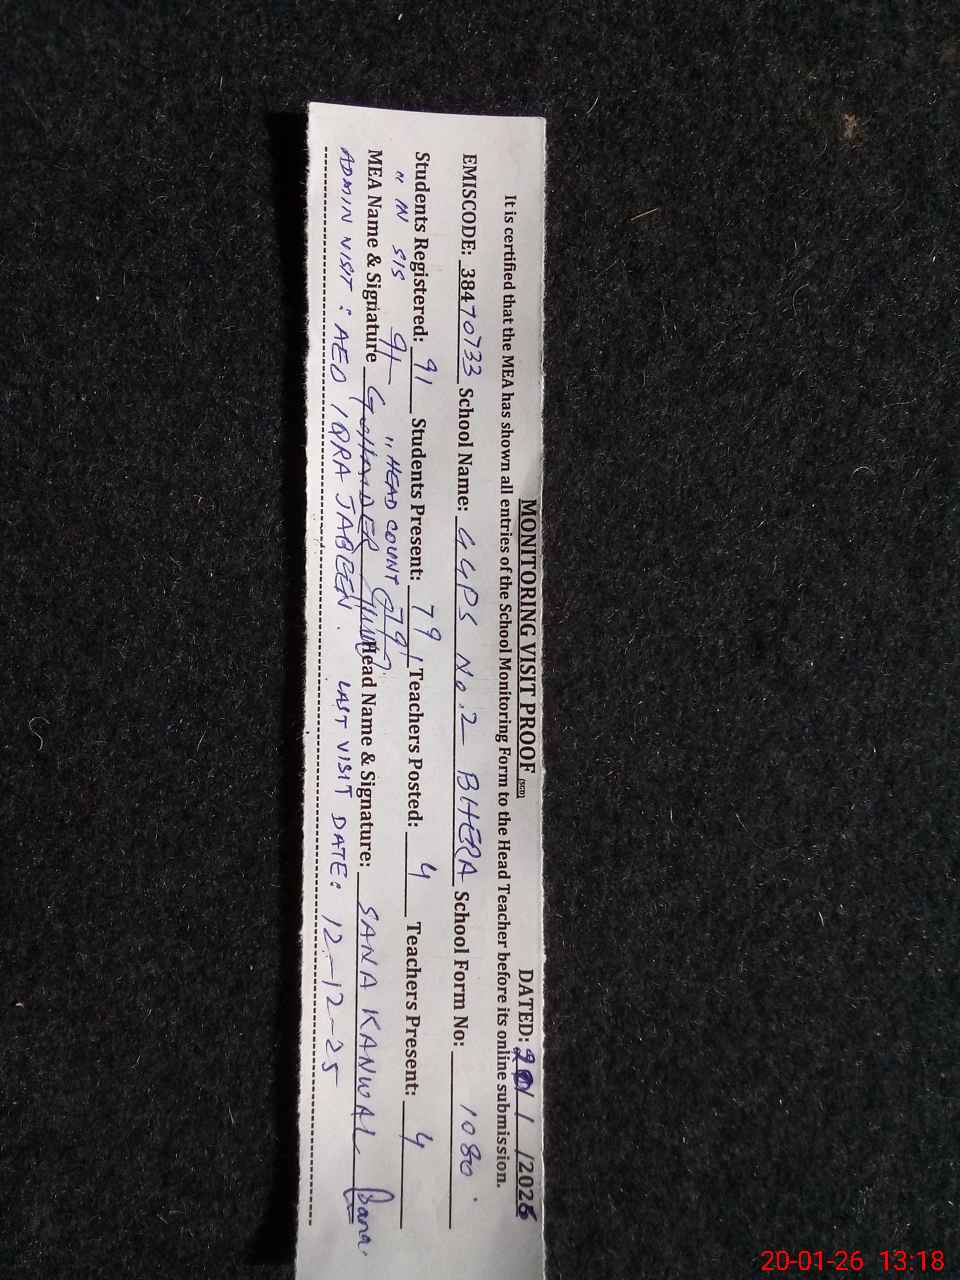 MONITORING VISIT PROOF (SED) DATED: 20/1/2026
It is certified that the MEA has shown all entries of the School Monitoring Form to the Head Teacher before its online submission.
EMISCODE: 38470733 School Name: GGPS No.2 BHERA School Form No: 1080.
Students Registered: 91 Students Present: 79 Teachers Posted: 4 Teachers Present: 4
" IN SIS 91 " HEAD COUNT 79
MEA Name & Signature Head Name & Signature: SANA KANWAL Sana.
ADMIN VISIT: AEO IQRA JABEEN. LAST VISIT DATE: 12-12-25
20-01-26 13:18